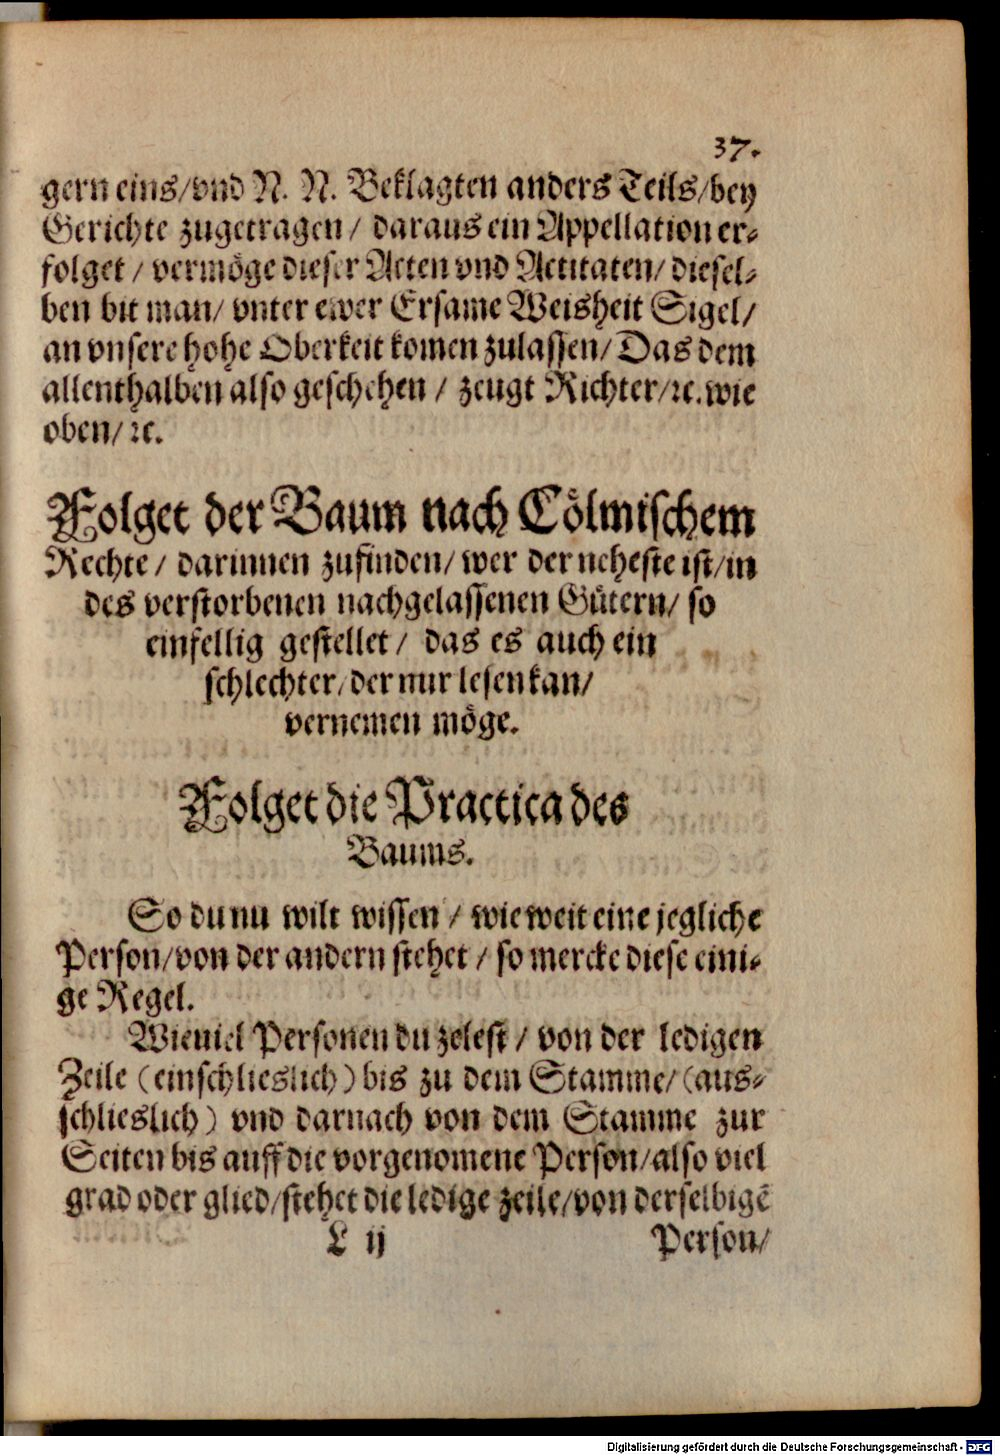 37.
gern eins/vnd N. N. Beklagten anders Teils/bey
Gerichte zugetragen/ daraus ein Appellation er-
folget/ vermöge dieser Acten vnd Actitaten/ diesel-
ben bit man/ vnter ewer Ersame Weisheit Sigel/
an vnsere hohe Oberkeit komen zulassen/ Das dem
allenthalben also geschehen/ zeugt Richter/ꝛc. wie
oben/ꝛc.
Folget der Baum nach Cölmischem
Rechte/ darinnen zufinden/ wer der neheste ist/in
des verstorbenen nachgelassenen Gütern/ so
einfellig gestellet/ das es auch ein
schlechter/der nur lesen kan/
vernemen möge.
Folget die Practica des
Baums.
So du nu wilt wissen/ wie weit eine jegliche
Person/von der andern stehet/ so mercke diese eini-
ge Regel.
Wieuiel Personen du zelest/ von der ledigen
Zeile (einschlieslich) bis zu dem Stamme/(aus-
schlieslich) vnd darnach von dem Stamme zur
Seiten bis auff die vorgenomene Person/also viel
grad oder glied/stehet die ledige zeile/von derselbigẽ
L ij Person/
Digitalisierung gefördert durch die Deutsche Forschungsgemeinschaft - DFG